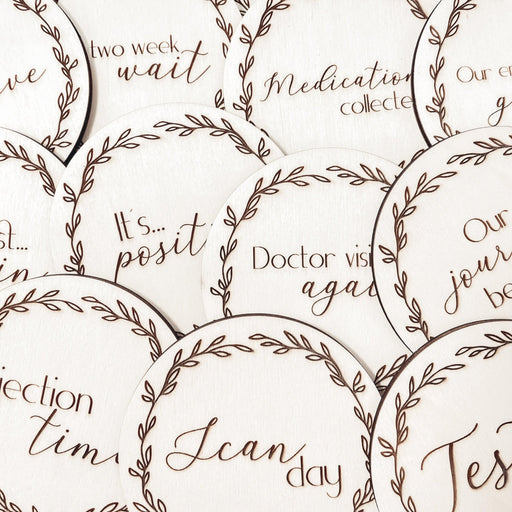 two week
wait
Medication
collecte
Our
It's...
posit
Doctor visi
agai
Our
jour
be
jection
time
Scan
day
Tes